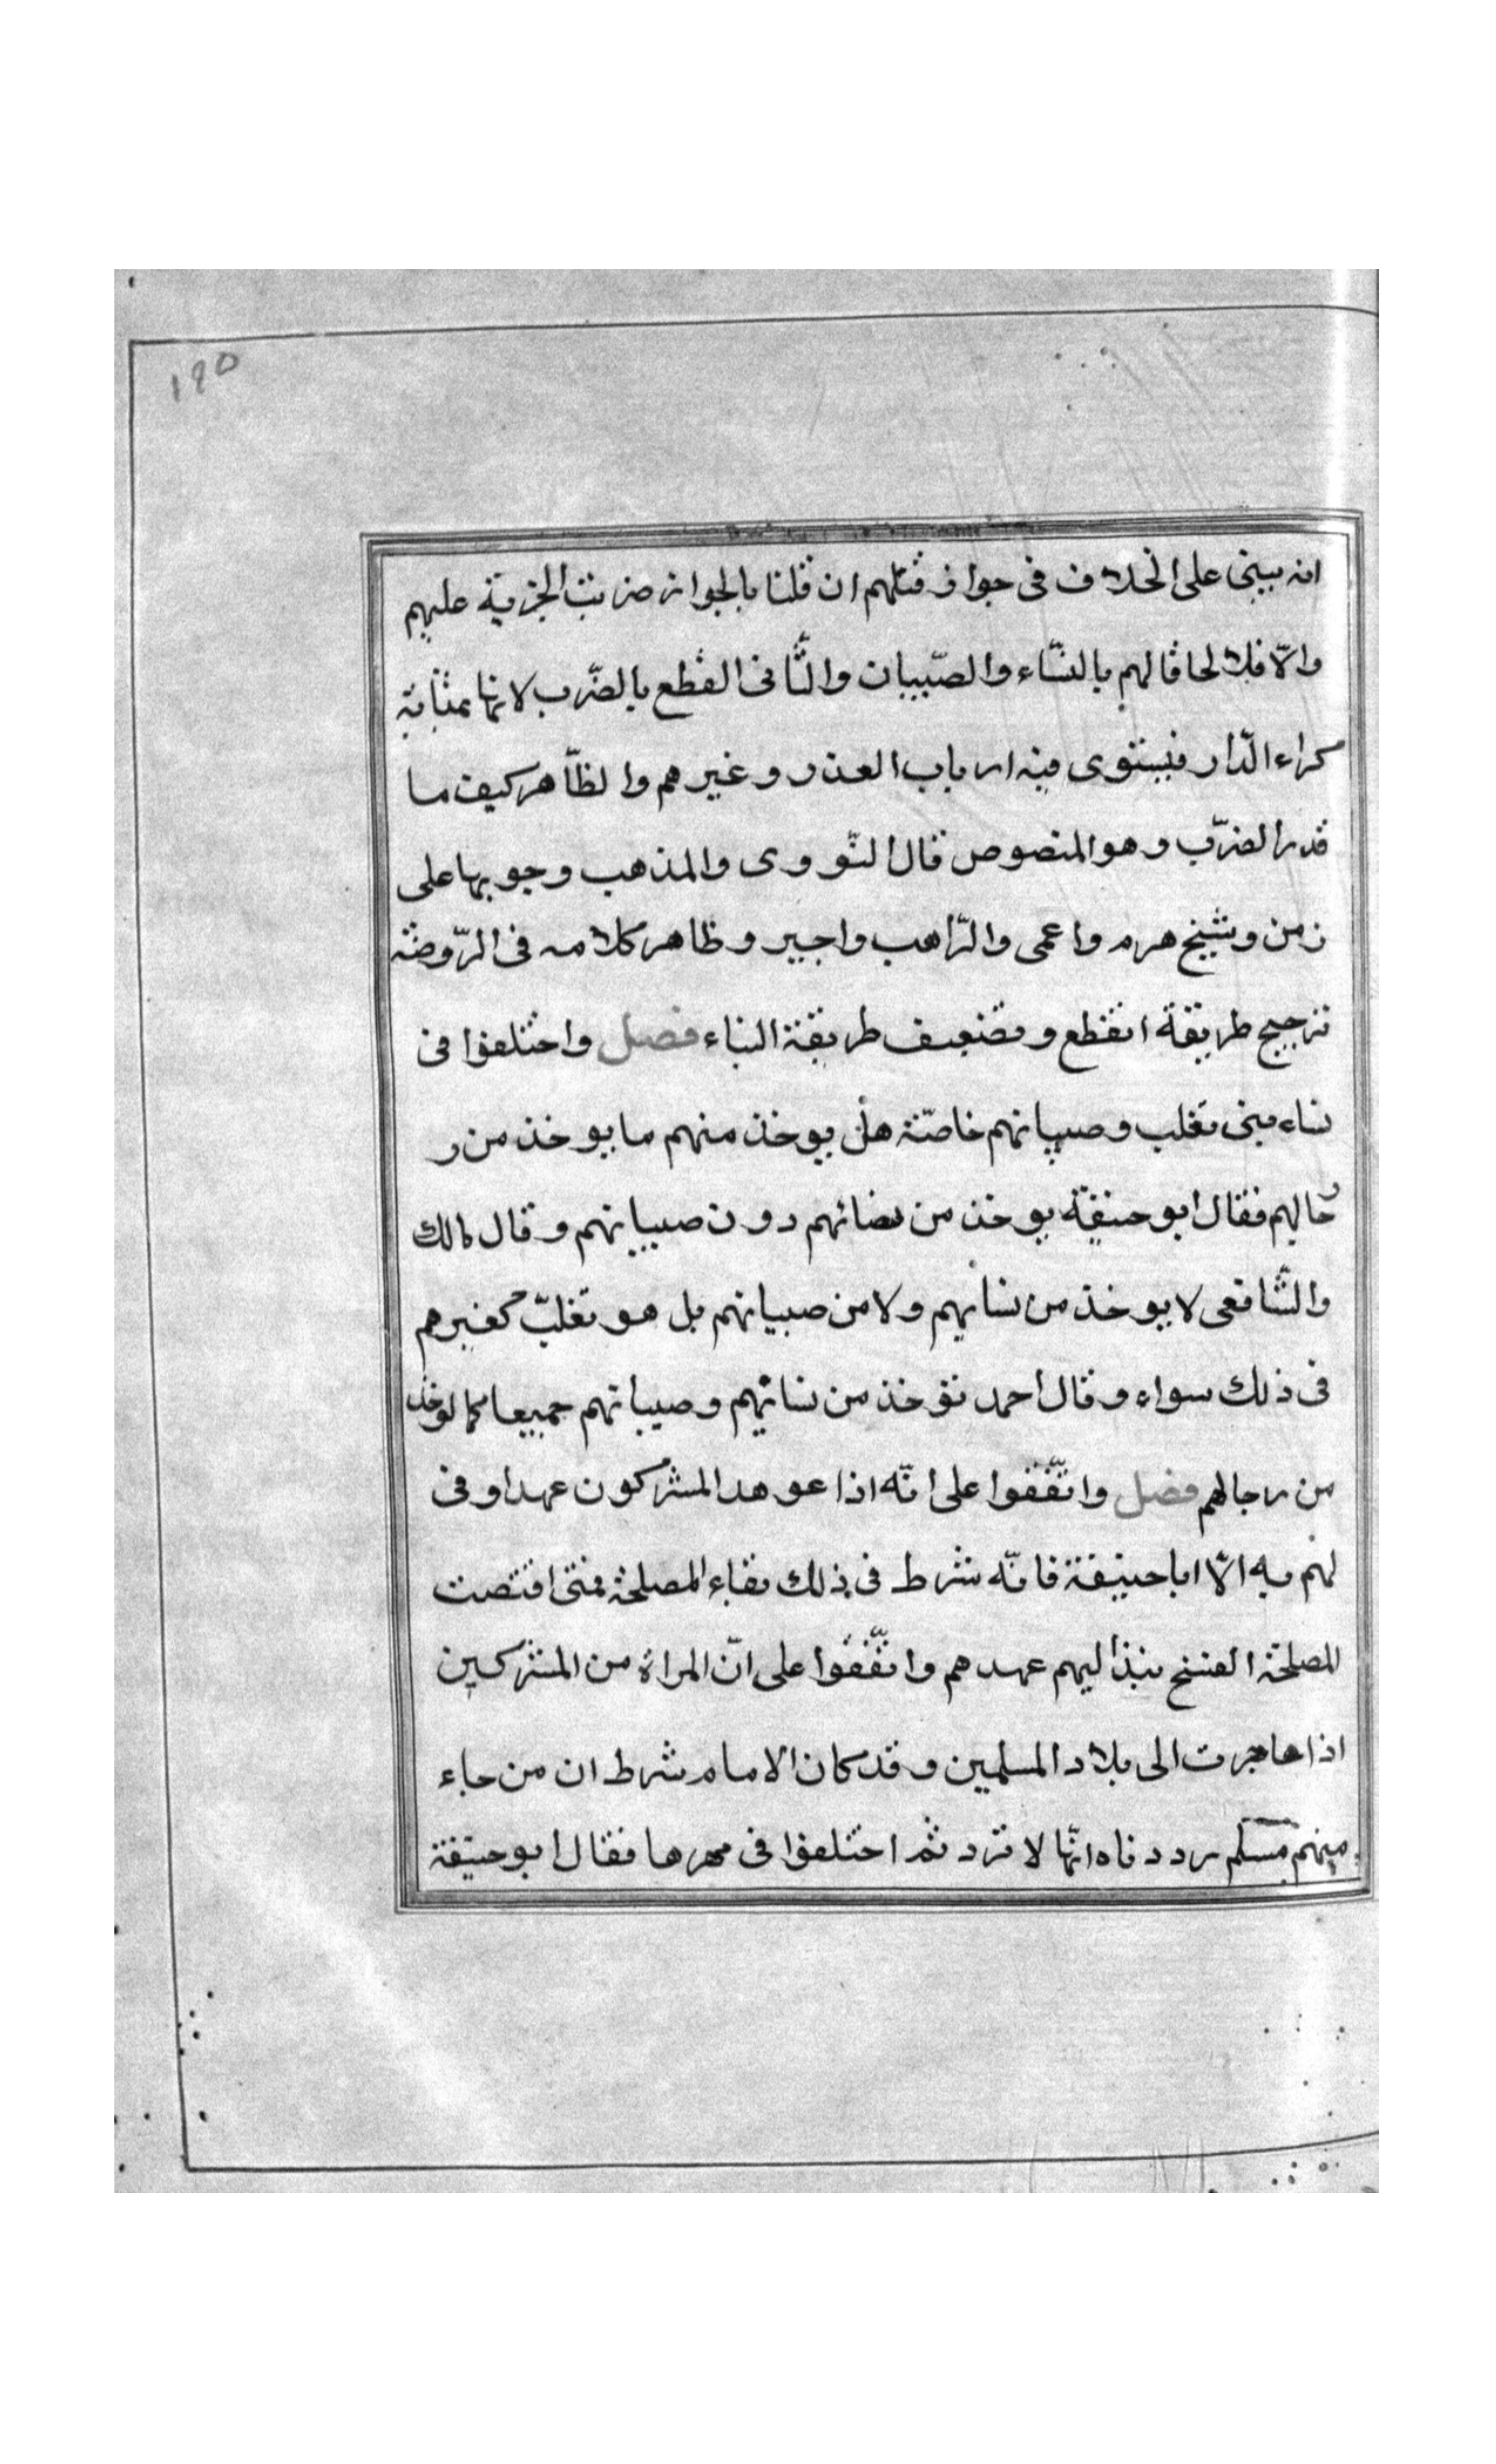 ١٩٥
انه يبنى على الخلاف فى جواز قتلهم ان قلنا بالجواز ضربت الجزية عليهم
والّا فلا لحاقا لهم بالنسّاء والصّبيان والثّانى القطع بالضّرب لانها بمثابة
كراء الدّار فيستوى فيه ارباب العذر وغيرهم والظّاهر كيف ما
قدر الضرّب وهو المنصوص قال النّووى والمذهب وجوبها على
زمن وشيخ هرم واعمى والرّاهب واجير وظاهر كلامه فى الرّوضة
ترجيح طريقة القطع وتضعيف طريقة البناء فصل واختلفوا فى
نساء بنى تغلب وصبيانهم خاصّة هل يوخذ منهم ما يوخذ من ر
جالهم فقال ابو حنيفة يوخذ من نسائهم دون صبيانهم وقال مالك
والشّافعى لا يوخذ من نسائهم ولا من صبيانهم بل هو تغلبّ كغيرهم
فى ذلك سواء وقال احمد توخذ من نسائهم وصبيانهم جميعا كما يوخذ
من رجالهم فصل واتّفقوا على انّه اذا عوهد المشركون عهدا وفى
لهم به الّا ابا حنيفة فانّه شرط فى ذلك بقاء المصلحة فمتى اقتضت
المصلحة الفسخ نبذ اليهم عهدهم واتّفقوا على انّ المراة من المشركين
اذا هاجرت الى بلاد المسلمين وقد كان الامام شرط ان من جاء
منهم مسلم رددناه انّها لا ترد ثم اختلفوا فى مهرها فقال ابو حنيفة